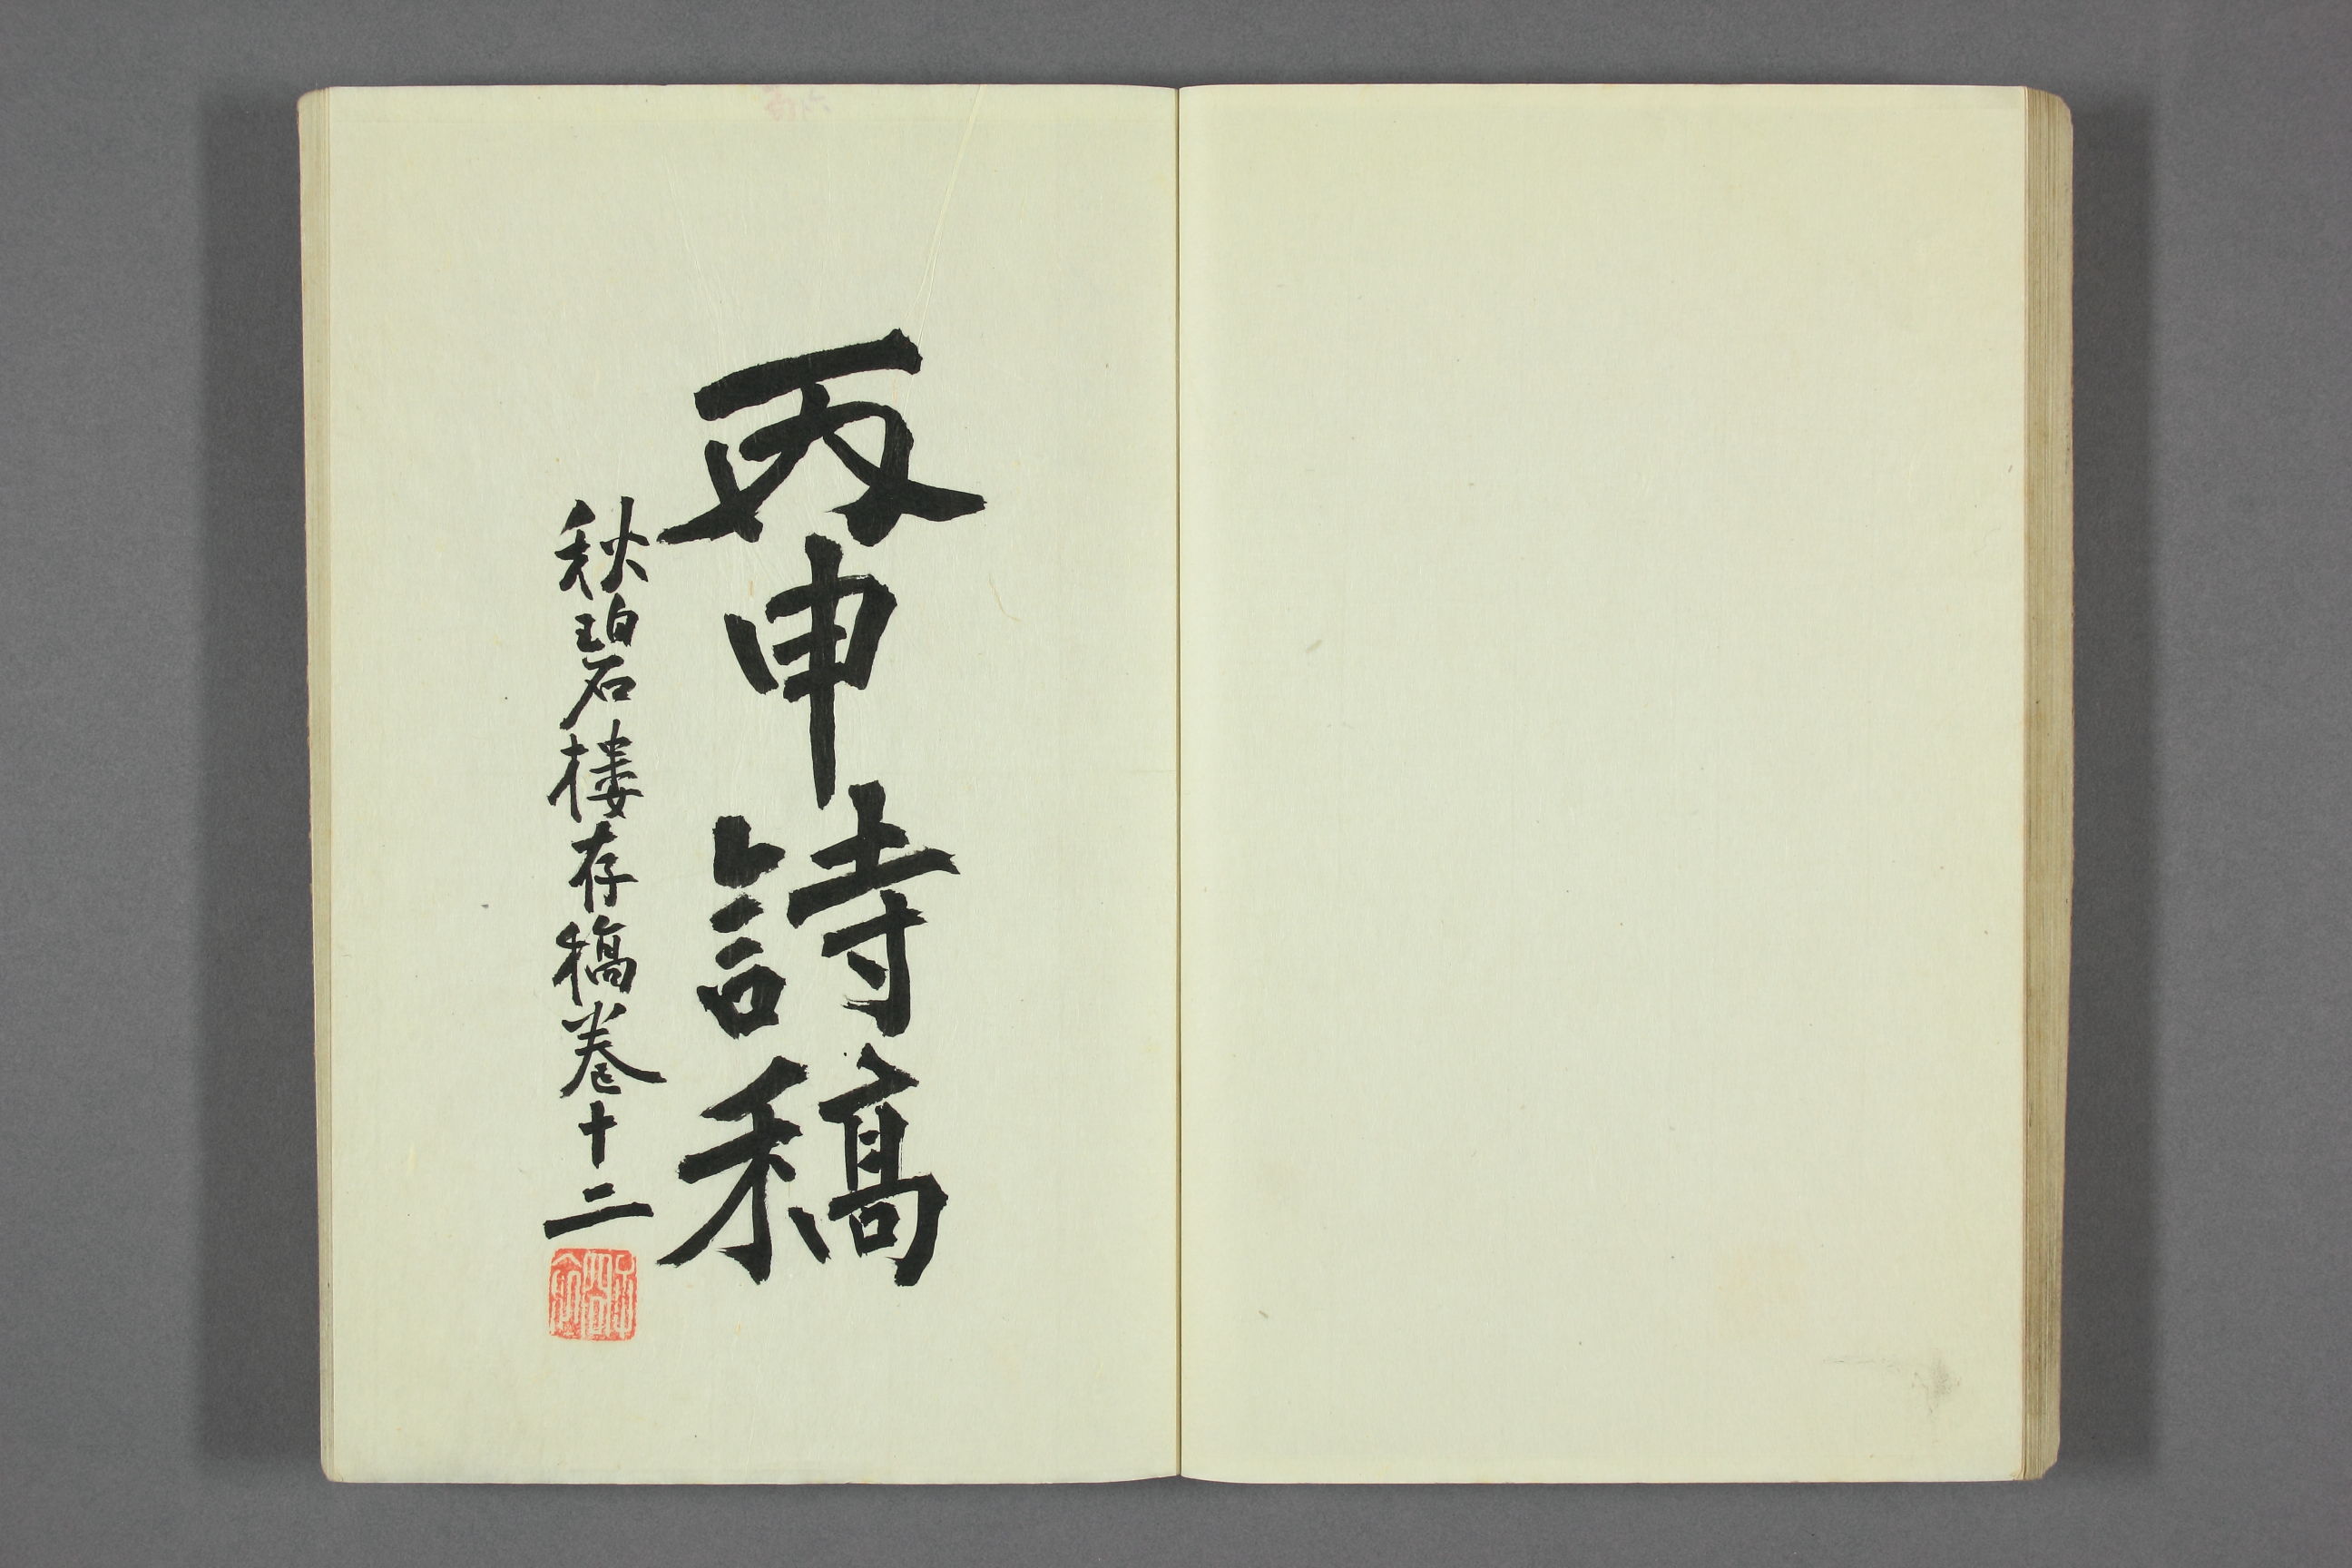 丙申詩稿
秋碧樓存稿卷十二